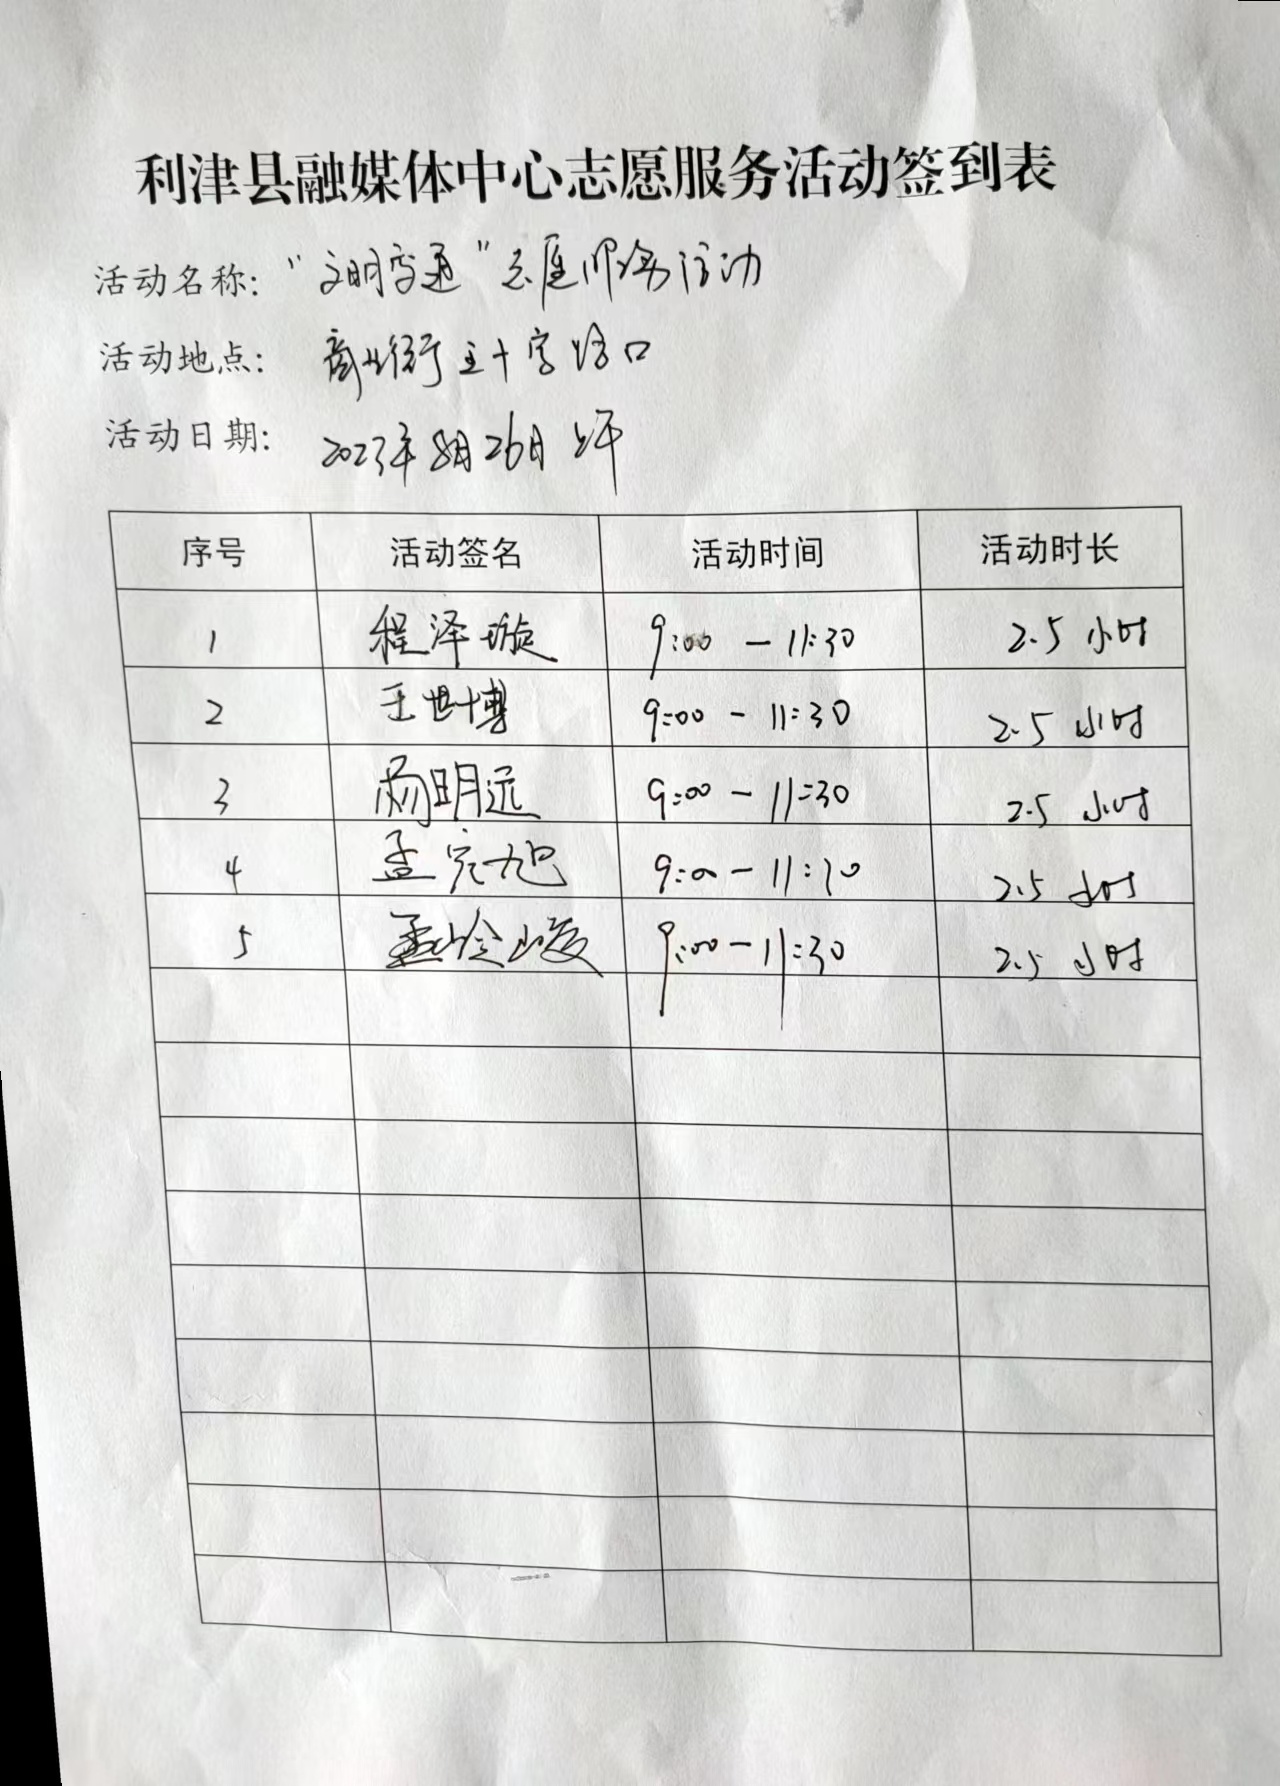 利津县融媒体中心志愿服务活动签到表
活动名称: "文明交通"志愿服务活动
活动地点: 商业街主十字路口
活动日期: 2023年8月26日上午
序号 活动签名 活动时间 活动时长
1 程泽璇 9:00 - 11:30 2.5 小时
2 王世博 9:00 - 11:30 2.5 小时
3 杨明远 9:00 - 11:30 2.5 小时
4 孟宪旭 9:00 - 11:30 2.5 小时
5 孟岭峻 9:00 - 11:30 2.5 小时